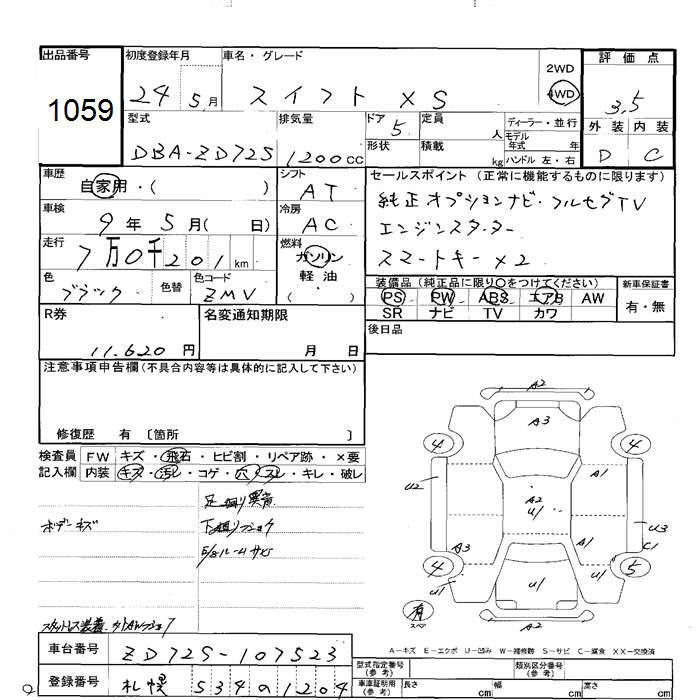 出品番号
1059
初度登録年月
24 5月
車名・グレード
スイフト XS
2WD
4WD
評価点
3.5
外装 内装
D C
型式
DBA-ZD72S
排気量
1200cc
ドア 5
形状
定員 人
積載 kg
ディーラー・並行
モデル年式 年
ハンドル 左・右
車歴
自家用・( )
シフト
AT
車検
9年5月( 日)
冷房
AC
走行
7万0千201km
燃料
ガソリン
軽油
( ・ )
色
ブラック
色替
色コード
ZMV
セールスポイント (正常に機能するものに限ります)
純正オプションナビ・フルセグTV
エンジンスターター
スマートキー×2
装備品(純正品に限り○をつけてください)
PS PW ABS エアB AW
SR ナビ TV カワ
新車保証書
有・無
R券
11.620円
名変通知期限
月 日
後日品
注意事項申告欄(不具合内容等は具体的に記入して下さい)
修復歴 有 〔箇所 〕
検査員記入欄
FW キズ・飛石・ヒビ割・リペア跡・×要
内装 キズ・汚レ・コゲ・穴・スレ・キレ・破レ
ボデーキズ
足廻り異音
A2
A3
4 4
A1
U2
A2
U1
U3
C1
A3
A1
4 5
U1
U1
U1
有
スペア
A2
A-キズ E-エクボ U-凹み W-補修跡 S-サビ C-腐食 XX-交換済
車台番号
ZD72S-107523
登録番号
札幌 534 の 1204
型式指定番号(参考)
類別区分番号(参考)
車庫証明用(参考)
長さ cm
幅 cm
高さ cm